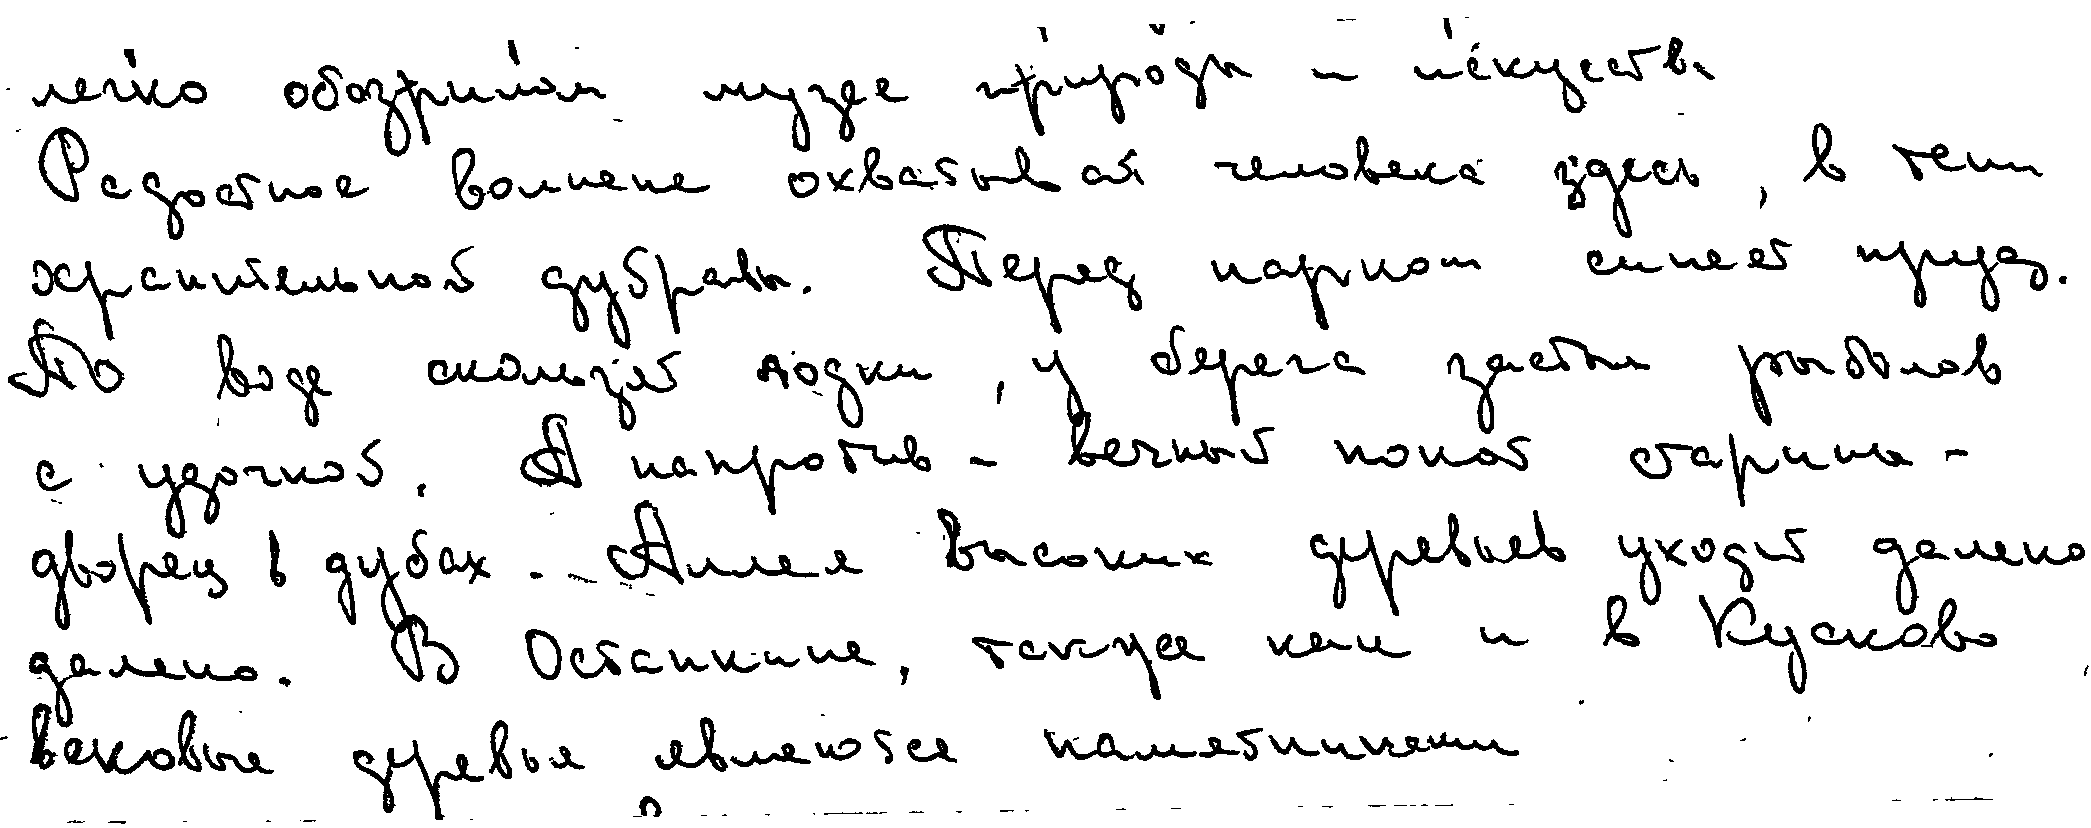 легко обозримом музее природы и искуств.
Радостное волнене охватывает человека здесь, в тени
хранительной дубравы. Перед парком синеет пруд.
По воде скользят лодки, у берега застыл рыболов
с удочкой. А напротив - вечный покой старины -
дворец в дубах. Аллея высоких деревьев уходит далеко
далеко. В Останкине, также как и в Кусково
вековые деревья являются памятниками